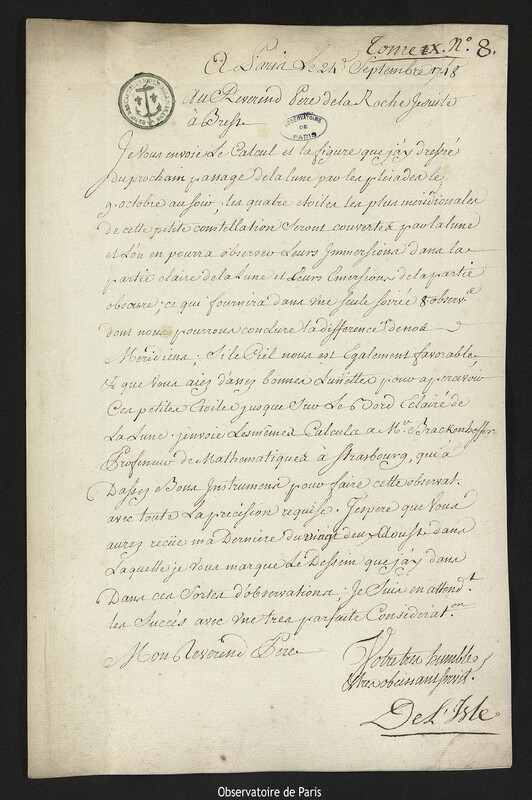 Tome IX. N.º 8.
A Paris Le 24.e Septembre 1748
Au Reverend Pere de la Roche Jesuite
à Brest.
OBSERVATOIRE
DE
PARIS
Je Vous envoie Le Calcul et la figure que j'ay dressé
du prochain passage de la lune par les pleiades le
9. octobre au soir; les quatre etoiles les plus meridionales
de cette petite constellation Seront couvertes par la lune
et L'on en pourra observer Leurs Immersions dans la
partie claire de la Lune et Leurs Emersions de la partie
obscure; ce qui fournira dans une Seule soirée 8 observ.s
dont nous pourrons conclure la difference de nos
Meridiens; Si le Ciel nous est Egalement favorable
& que Vous aiez d'assez bonnes Lunettes pour apercevoir
Ces petites Etoiles jusque Sur Le Bord Eclairé de
La Lune. j'envoie Les mêmes Calculs a Mr. Brackenhoffer
Professeur de Mathematiques à Strasbourg, qui a
Dassez Bons Instrumens pour faire cette observat.
avec toute La précision requise. J'espere que Vous
aurez reçüe ma Derniere du vingt deux Aoust dans
Laquelle je Vous marque Le Dessein que j'ay dans
Dans ces Sortes d'observations; Je Suis en attend.t
les Succés avec une tres parfaite Considerat.on
Mon Reverend Pere
Votre tres humble
& tres obeissant servit.
De L'Isle
Observatoire de Paris